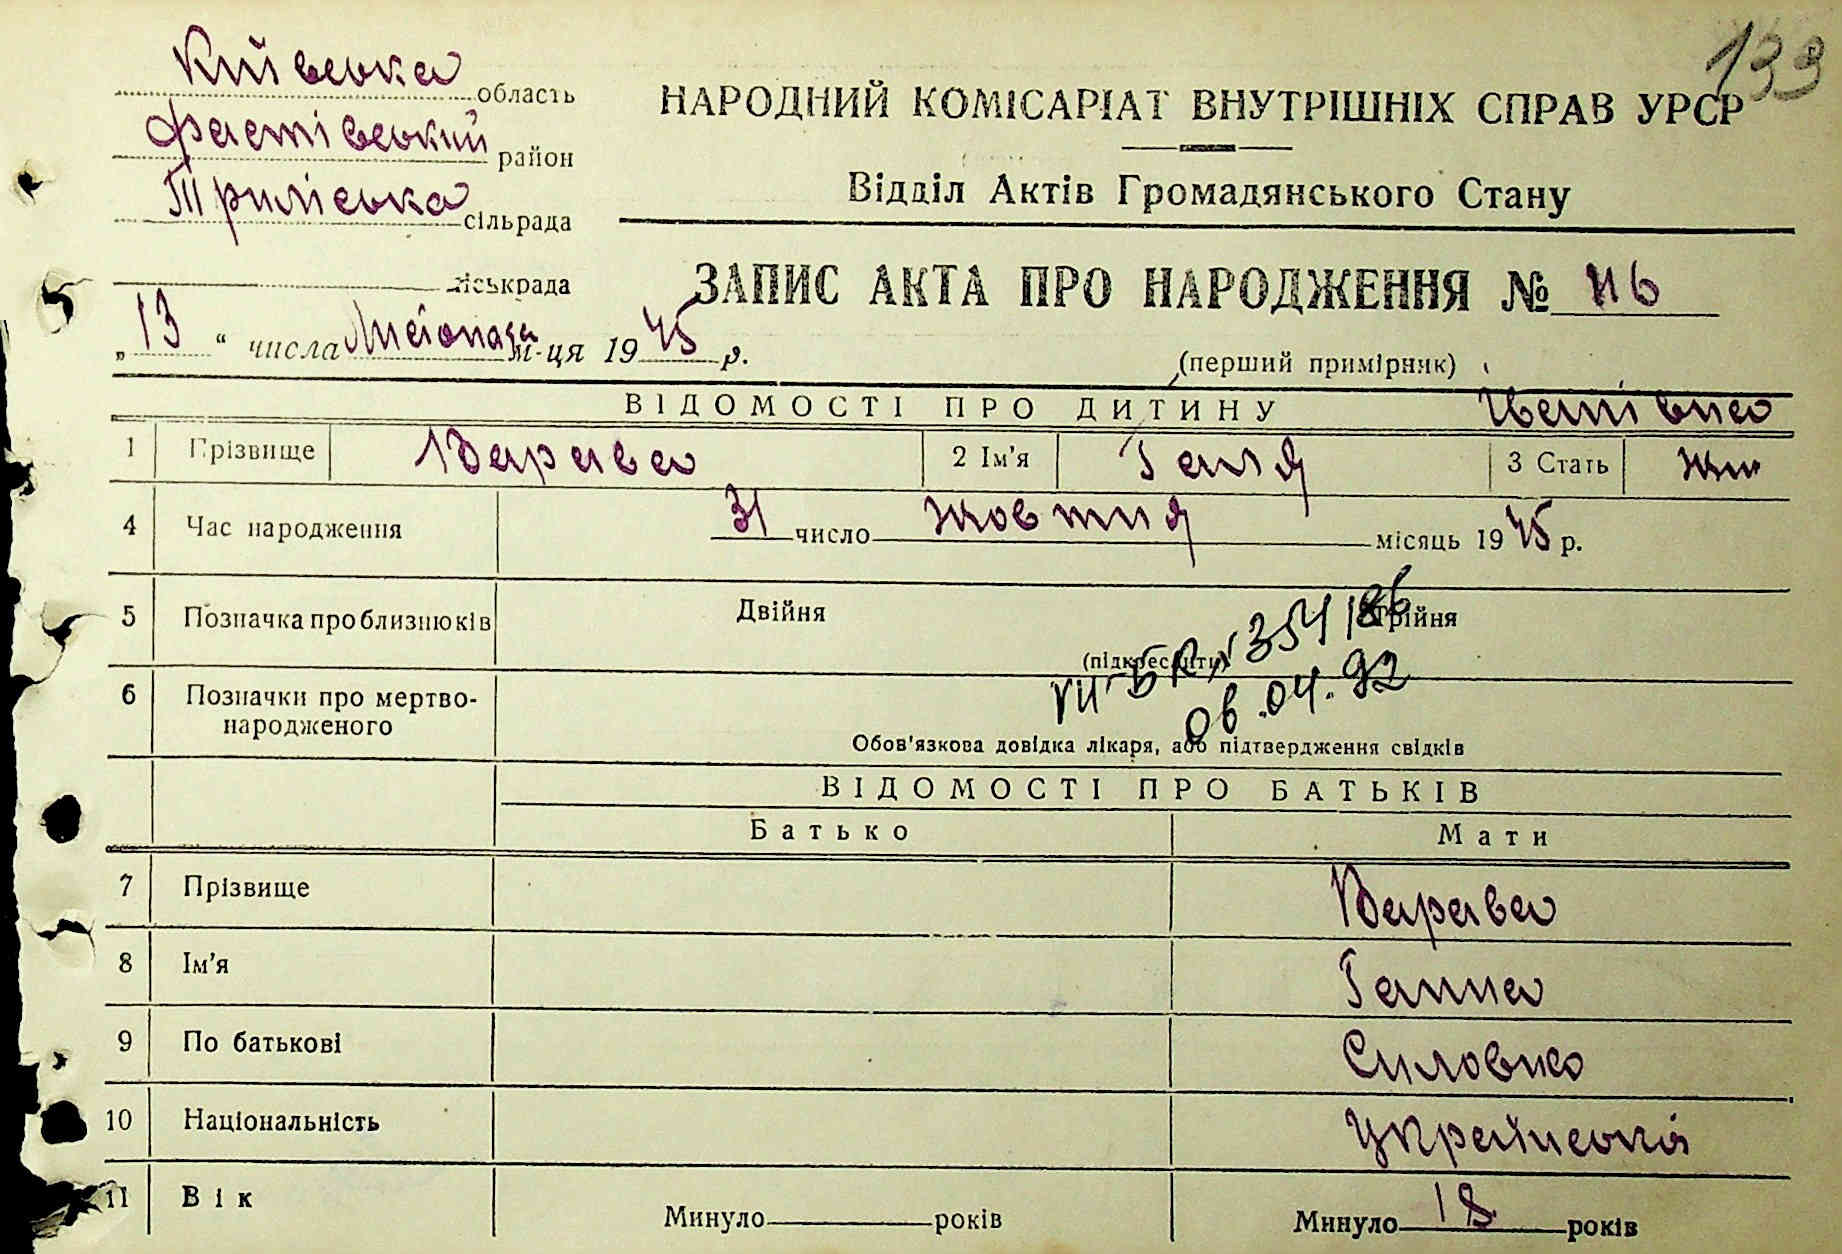 133
Київська область
Фастівський район
Триліська сільрада
міськрада
НАРОДНИЙ КОМІСАРІАТ ВНУТРІШНІХ СПРАВ УРСР
Відділ Актів Громадянського Стану
ЗАПИС АКТА ПРО НАРОДЖЕННЯ № 116
„13“ числа листопада м-ця 1945 р.
(перший примірник)
ВІДОМОСТІ ПРО ДИТИНУ
1 Прізвище Варава 2 Ім'я Галя 3 Стать жін
4 Час народження 31 число жовтня місяць 1945 р.
5 Позначка про близнюків Двійня Трійня
(підкреслити)
VII-БК № 354186
06.04.92
6 Позначки про мертво-
народженого
Обов'язкова довідка лікаря, або підтвердження свідків
ВІДОМОСТІ ПРО БАТЬКІВ
Батько Мати
7 Прізвище Варава
8 Ім'я Ганна
9 По батькові Силовна
10 Національність
11 Вік Минуло років Минуло 18 років